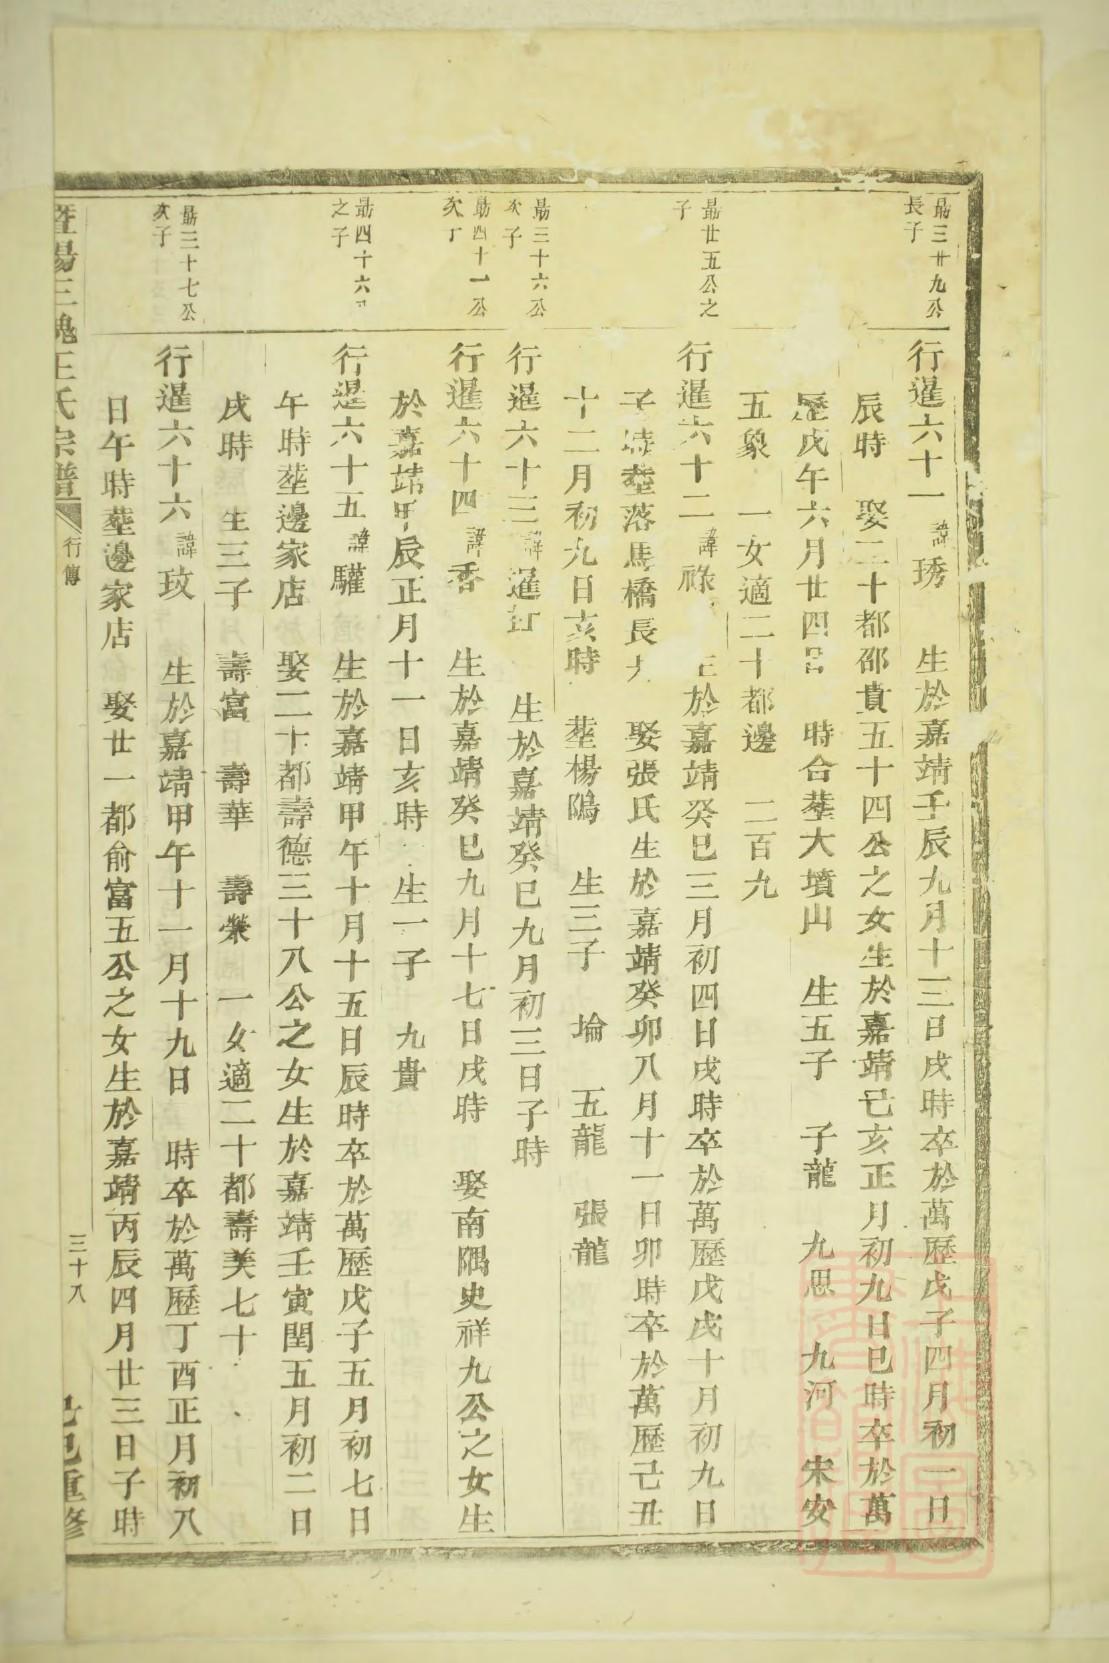 勗三廿九公
長子
行暹六十一 諱琇 生於嘉靖壬辰九月十三日戌時卒於萬歷戊子四月初一日
辰時 娶二十都邵貴五十四公之女生於嘉靖己亥正月初九日巳時卒於萬
歷戊午六月廿四日 時合塟大墳山 生五子 子龍 九思 九河 宋安
五象 一女適二十都邊 二百九
勗廿五公之
子
行暹六十二 諱祿 生於嘉靖癸巳三月初四日戌時卒於萬歷戊戌十月初九日
子時塟落馬橋長 娶張氏生於嘉靖癸卯八月十一日卯時卒於萬歷己丑
十二月初九日亥時 塟楊隖 生三子 埨 五龍 張龍
勗三十六公
次子
行暹六十三 諱暹 生於嘉靖癸巳九月初三日子時
勗四十一公
次丁
行暹六十四 諱香 生於嘉靖癸巳九月十七日戌時 娶南隅史祥九公之女生
於嘉靖甲辰正月十一日亥時 生一子 九貴
勗四十六
之子
行暹六十五 諱驩 生於嘉靖甲午十月十五日辰時卒於萬歷戊子五月初七日
午時塟邊家店 娶二十都壽德三十八公之女生於嘉靖壬寅閏五月初二日
戌時 生三子 壽富 壽華 壽榮 一女適二十都壽美七十
勗三十七公
次子
行暹六十六 諱玟 生於嘉靖甲午十一月十九日 時卒於萬歷丁酉正月初八
日午時塟邊家店 娶廿一都俞富五公之女生於嘉靖丙辰四月廿三日子時
暨陽三槐王氏宗譜 行傳 三十八 己巳重修